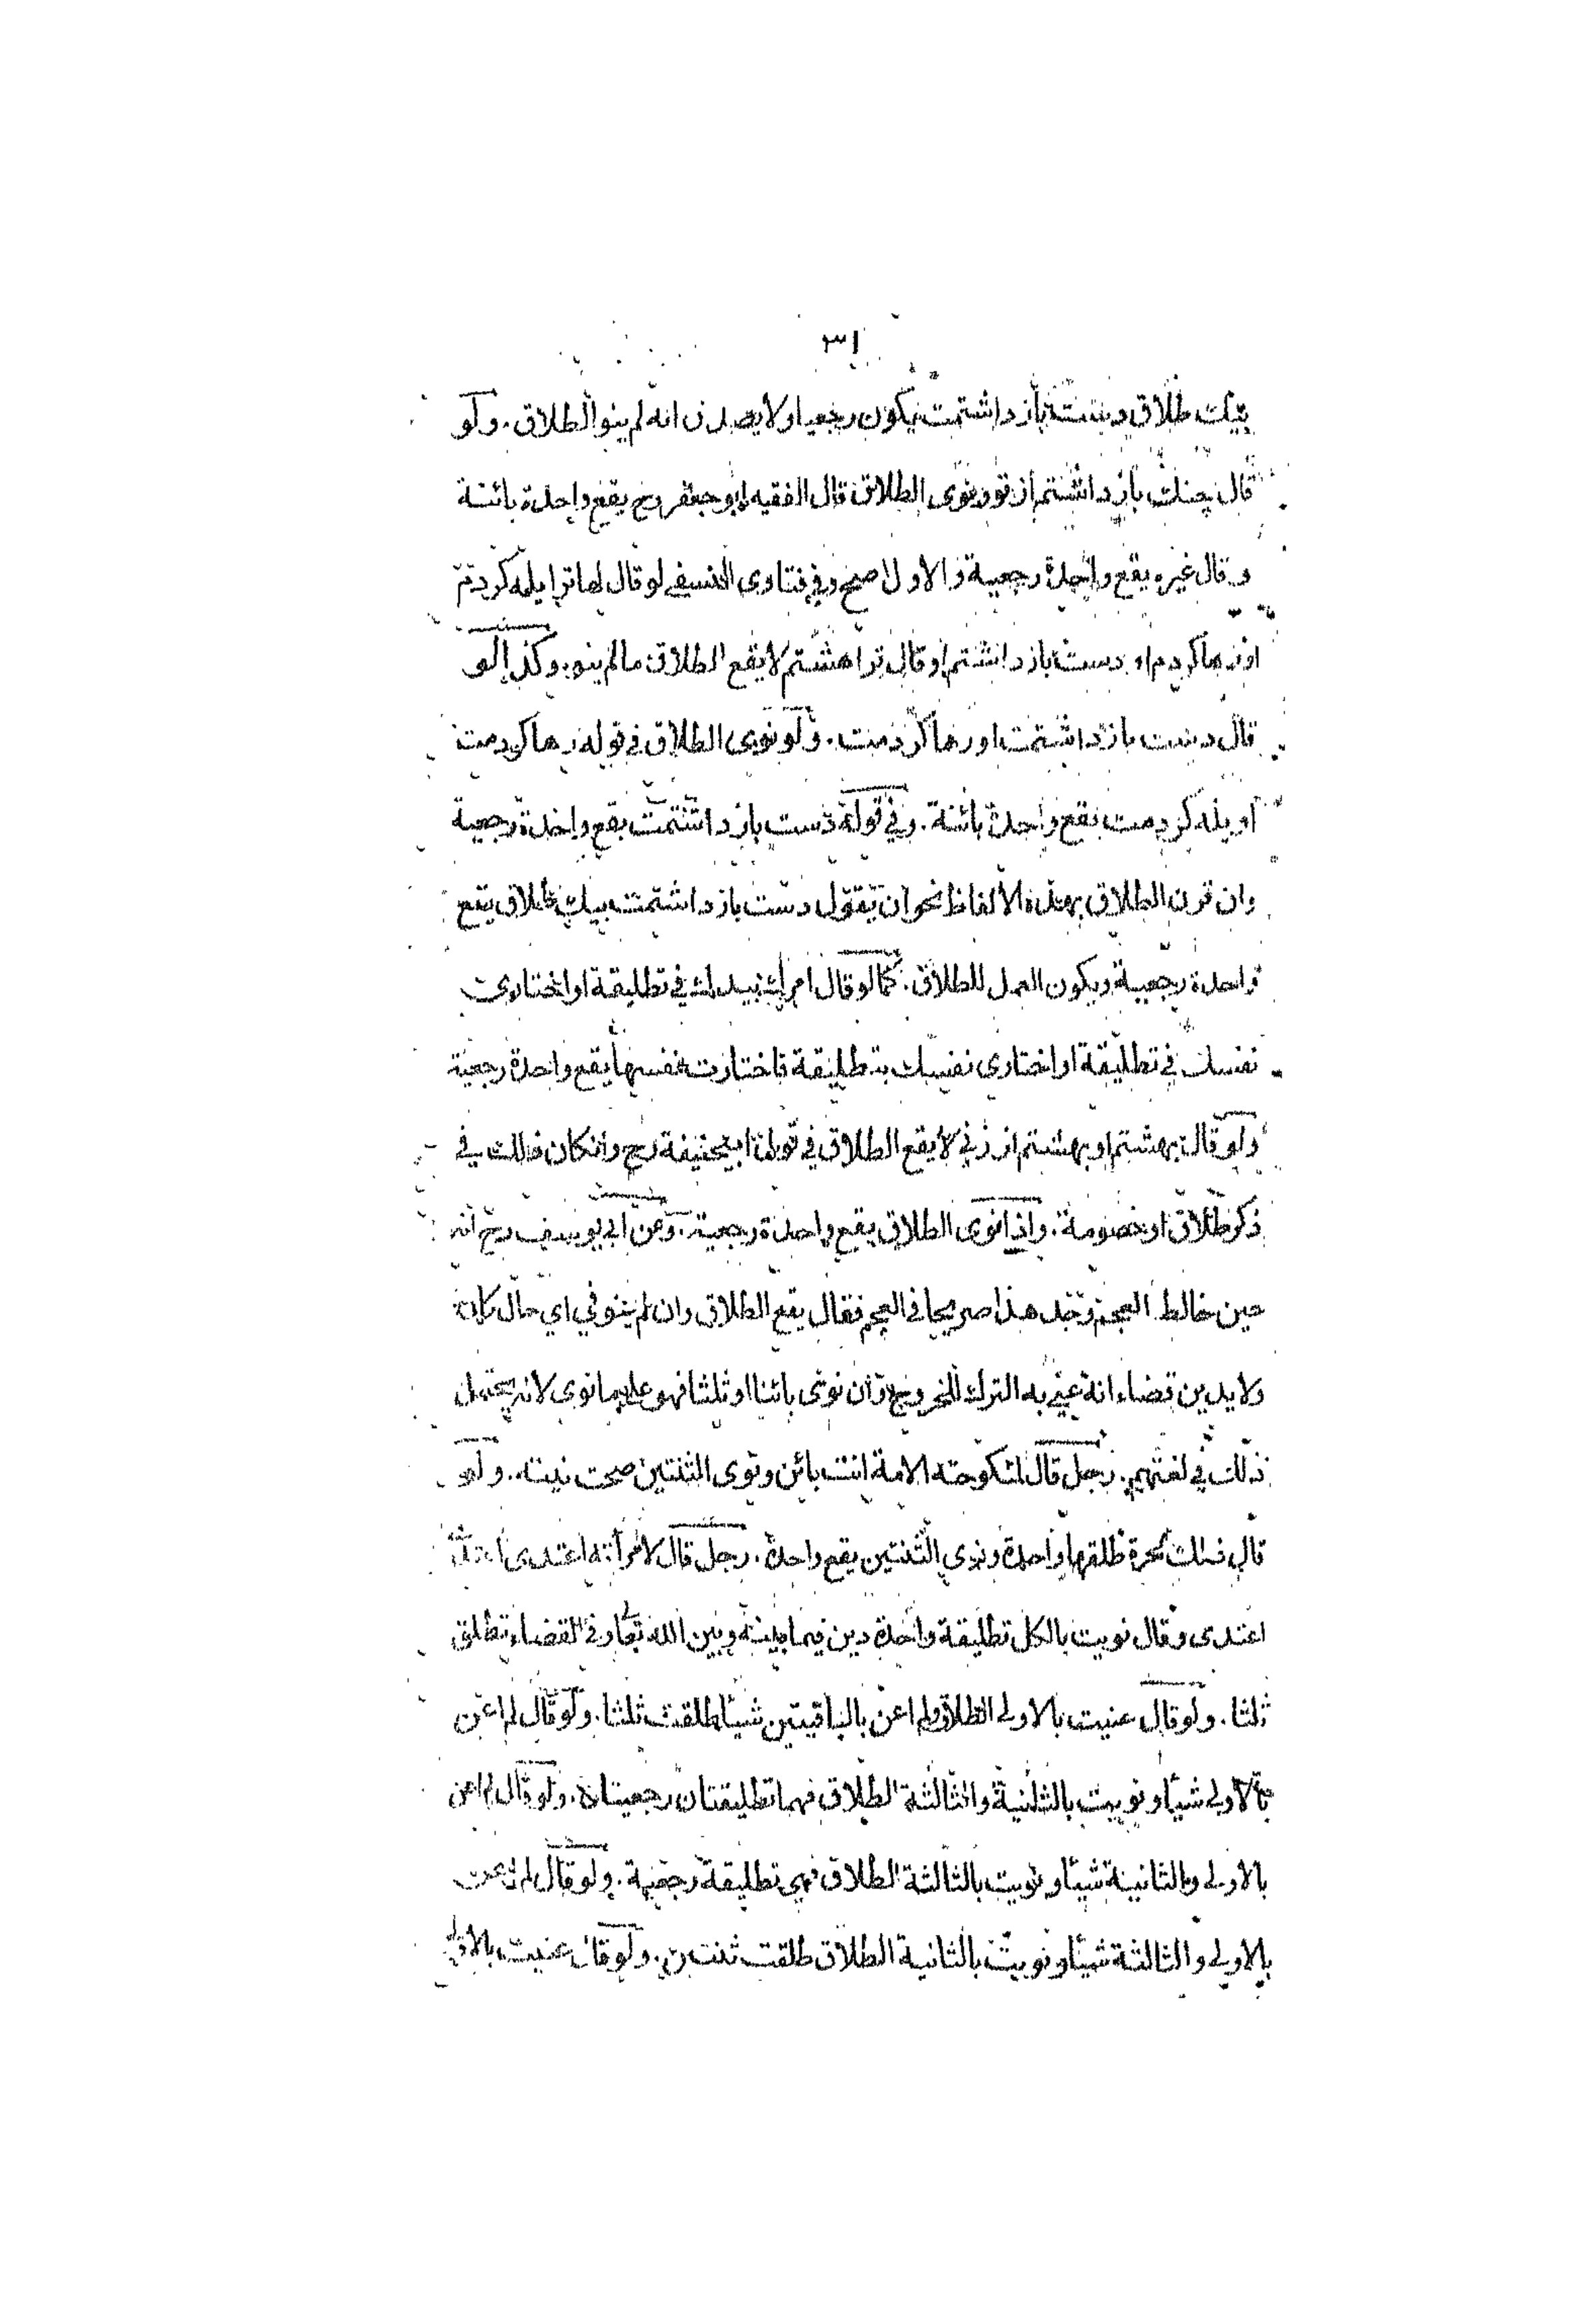 ٣١
بيك طلاق دست باز داشتمت يكون رجعيا ولا يصدق انه لم ينو الطلاق. ولو
قال چنك باز داشتم از تو ونوى الطلاق قال الفقيه ابو جعفر رح يقع واحدة بائنة
وقال غيره يقع واحدة رجعية والاول اصح وفي فتاوى النسفي لو قال لها ترا يله كردم
او رها كردم او دست باز داشتم او قال ترا هشتم لا يقع الطلاق ما لم ينو. وكذا لو
قال دست باز داشتمت او رها كردمت. ولو نوى الطلاق في قوله رها كردمت
او يله كردمت يقع واحدة بائنة. وفي قوله دست باز داشتمت يقع واحدة رجعية
وان قرن الطلاق بهذه الالفاظ نحو ان يقول دست باز داشتمت بيك طلاق يقع
واحدة رجعية ويكون العمل للطلاق. كما لو قال امرك بيدك في تطليقة او اختارى
نفسك في تطليقة او اختارى نفسك بتطليقة فاختارت نفسها يقع واحدة رجعية
ولو قال بهشتم او بهشتم از زني لا يقع الطلاق في قول ابيحنيفة رح وانكان ذلك في
ذكر طلاق او خصومة. واذا نوى الطلاق يقع واحدة رجعية. وعن ابي يوسف رح انه
حين خالط العجم وجد هذا صريحا في العجم فقال يقع الطلاق وان لم ينو في اي حال كان
ولا يدين قضاء انه عنى به الترك للخروج وان نوى بائنا او ثلثا فهو على ما نوى لانه يحتمل
ذلك في لغتهم. رجل قال لمنكوحته الامة انت بائن ونوى الثنتين صحت نيته. ولو
قال ذلك لحرة طلقها واحدة ونوى الثنتين يقع واحدة. رجل قال لامرأته اعتدى اعتدى
اعتدى وقال نويت بالكل تطليقة واحدة دين فيما بينه وبين الله تعا وفي القضاء تطلق
ثلثا. ولو قال عنيت بالاولى الطلاق ولم اعن بالباقيتين شيئا طلقت ثلثا. ولو قال لم اعن
بالاولى شيئا ونويت بالثانية والثالثة الطلاق فهما تطليقتان رجعيتان. ولو قال لم اعن
بالاولى وبالثانية شيئا ونويت بالثالثة الطلاق فهي تطليقة رجعية. ولو قال لم اعن
بالاولى والثالثة شيئا ونويت بالثانية الطلاق طلقت ثنتين. ولو قال عنيت بالاولى